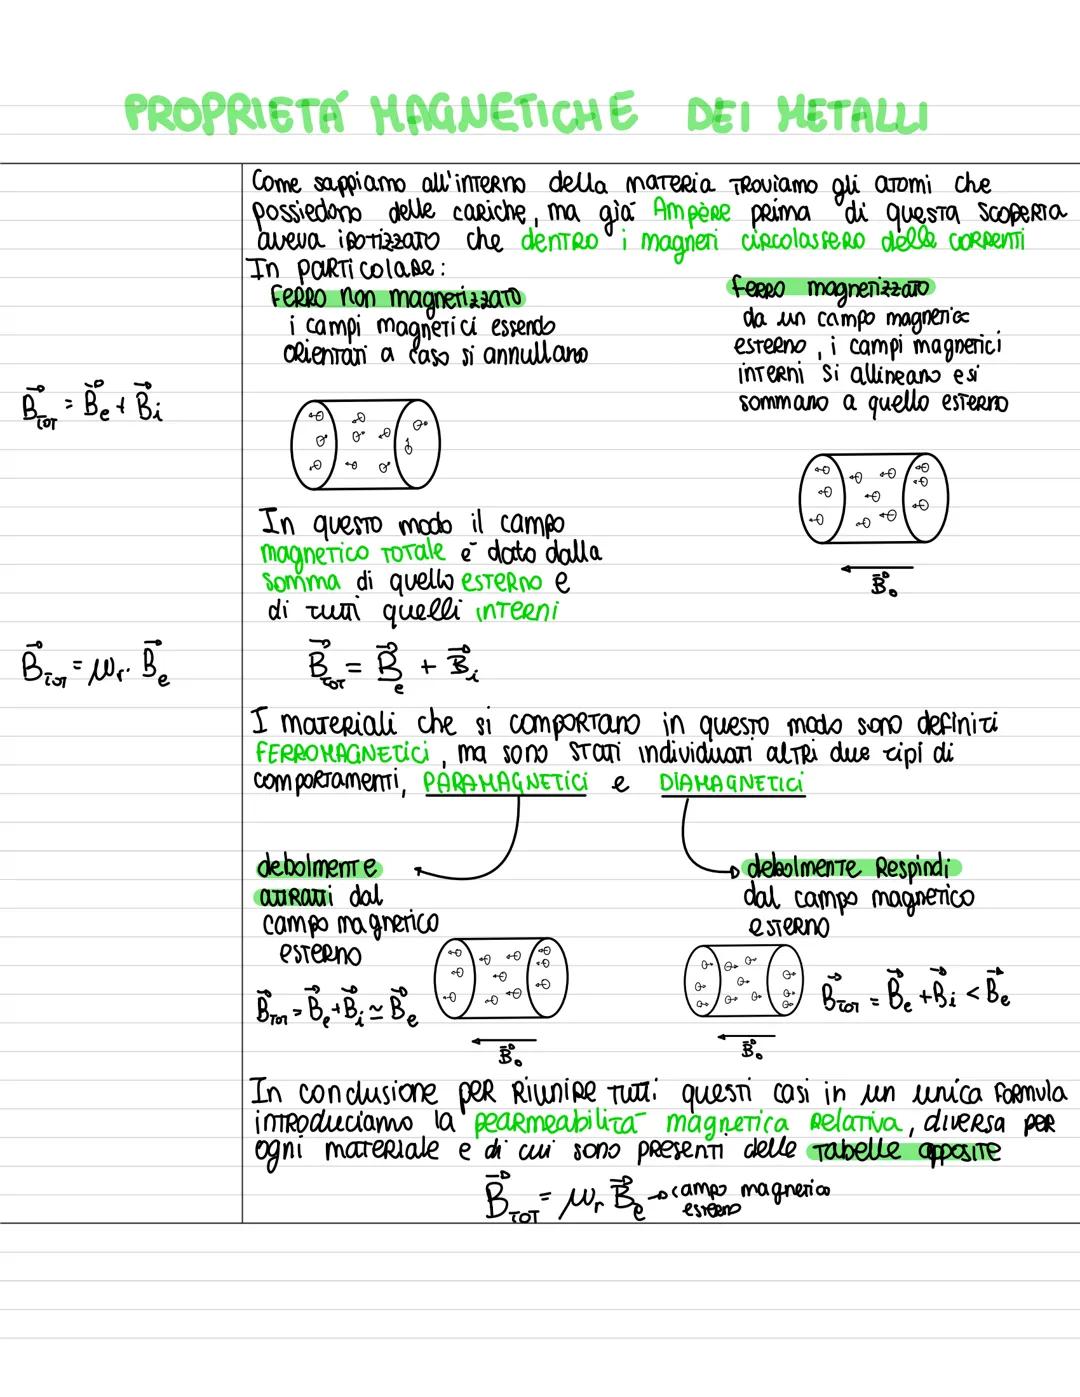 PROPRIETÁ MAGNETICHE DEI METALLI
Come sappiamo all'interno della materia troviamo gli atomi che
possiedono delle cariche, ma giá Ampère prima di questa scoperta
aveva ipotizzato che dentro i magneti circolassero delle correnti
In particolare:
ferro non magnetizzato
i campi magnetici essendo
orientati a caso si annullano
ferro magnetizzato
da un campo magnetico
esterno, i campi magnetici
interni si allineano e si
sommano a quello esterno
B⃗tot = B⃗e + B⃗i
In questo modo il campo
magnetico totale é dato dalla
somma di quello esterno e
di tutti quelli interni
B⃗o
B⃗tot = μr · B⃗e
B⃗tot = B⃗e + B⃗i
I materiali che si comportano in questo modo sono definiti
FERROMAGNETICI, ma sono stati individuati altri due tipi di
comportamenti, PARAMAGNETICI e DIAMAGNETICI
debolmente
attratti dal
campo magnetico
esterno
debolmente Respindi
dal campo magnetico
esterno
B⃗tot = B⃗e + B⃗i ≃ B⃗e
B⃗o
B⃗tot = B⃗e + B⃗i < B⃗e
B⃗o
In conclusione per riunire tutti questi casi in un unica formula
introduciamo la pearmeabilitá magnetica relativa, diversa per
ogni materiale e di cui sono presenti delle tabelle apposite
B⃗tot = μr B⃗e → campo magnetico
esterno